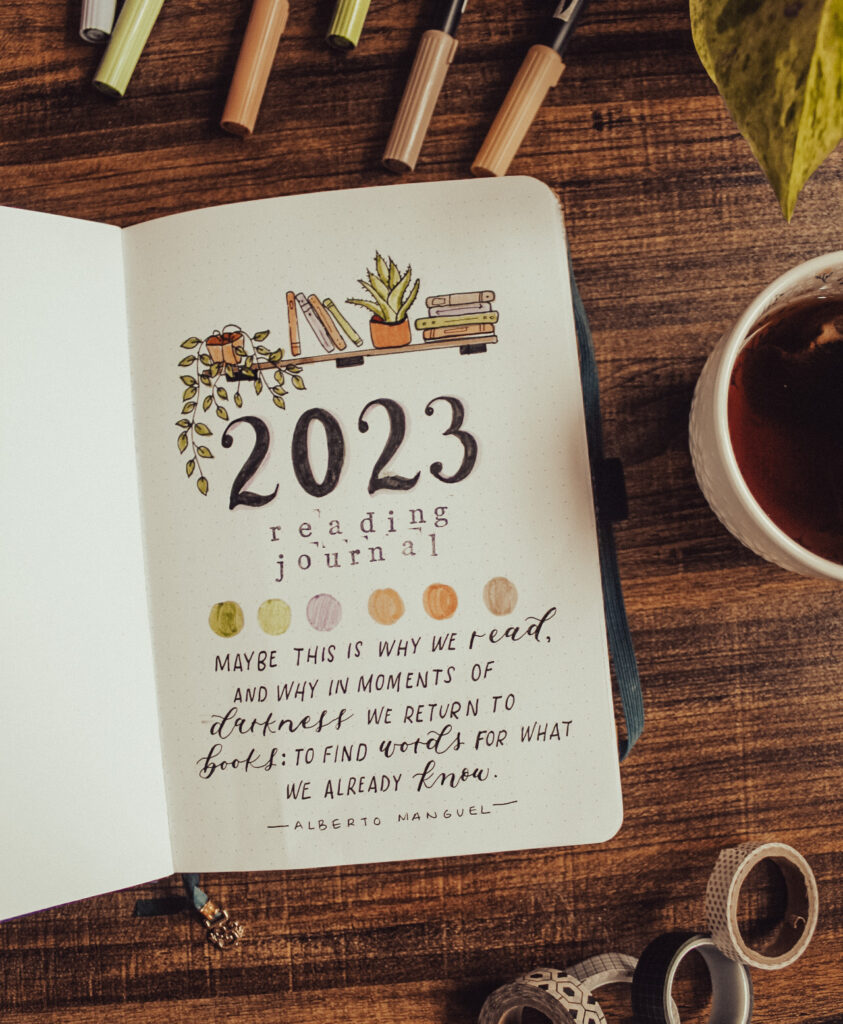 2023
reading
journal
MAYBE THIS IS WHY WE read,
AND WHY IN MOMENTS OF
darkness WE RETURN TO
books: TO FIND words FOR WHAT
WE ALREADY know.
—ALBERTO MANGUEL—